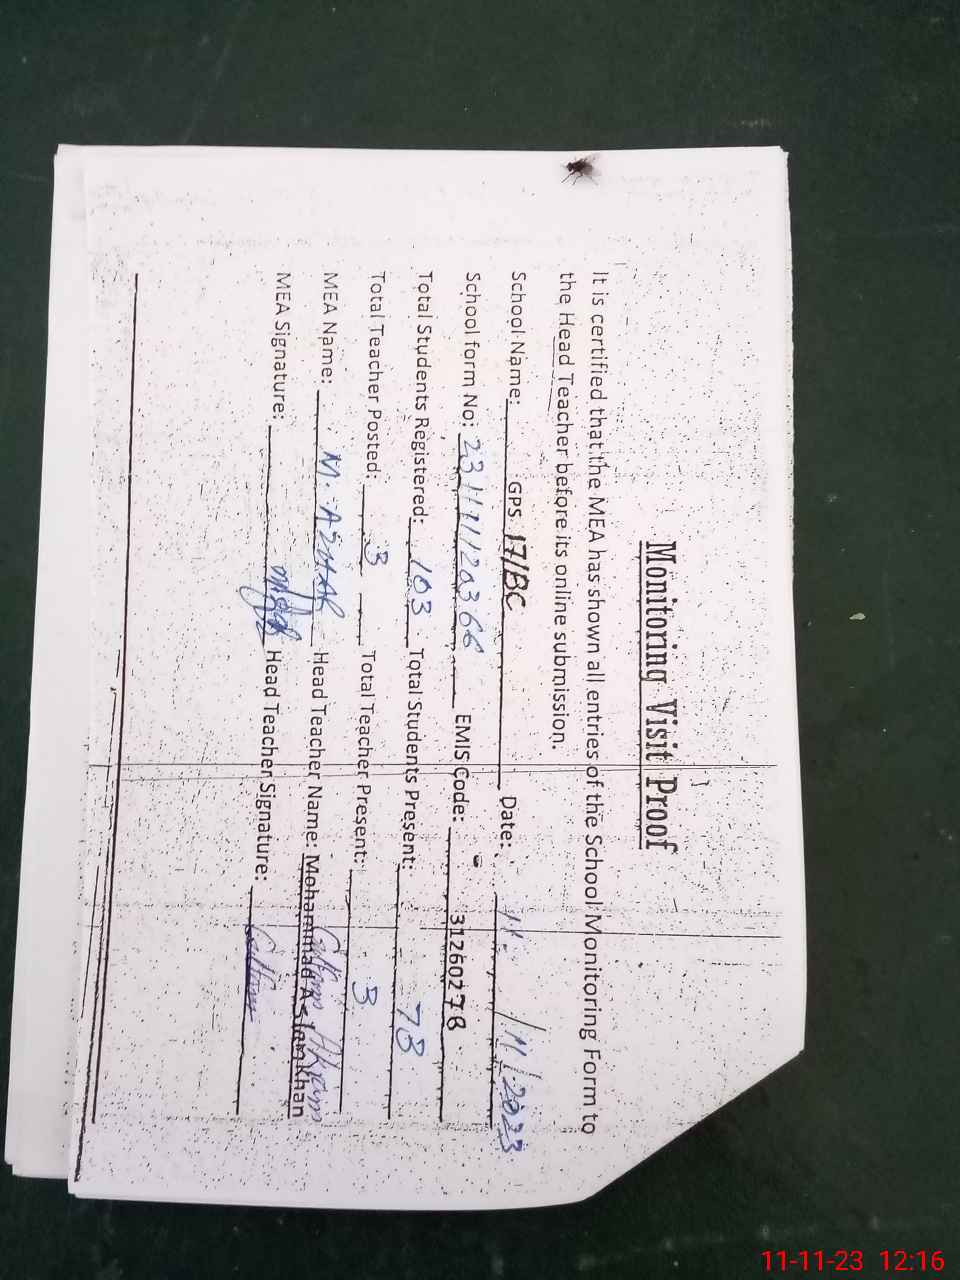 Monitoring Visit Proof
It is certified that the MEA has shown all entries of the School Monitoring Form to
the Head Teacher before its online submission.
School Name: GPS 17/BC Date: 11 / 11 / 2023
School form No: 23111120366 EMIS Code: 31260278
Total Students Registered: 103 Total Students Present: 78
Total Teacher Posted: 3 Total Teacher Present: 3
MEA Name: M. AZHAR Head Teacher Name: Mohammad Aslam Khan Akram
MEA Signature: Head Teacher Signature:
11-11-23 12:16